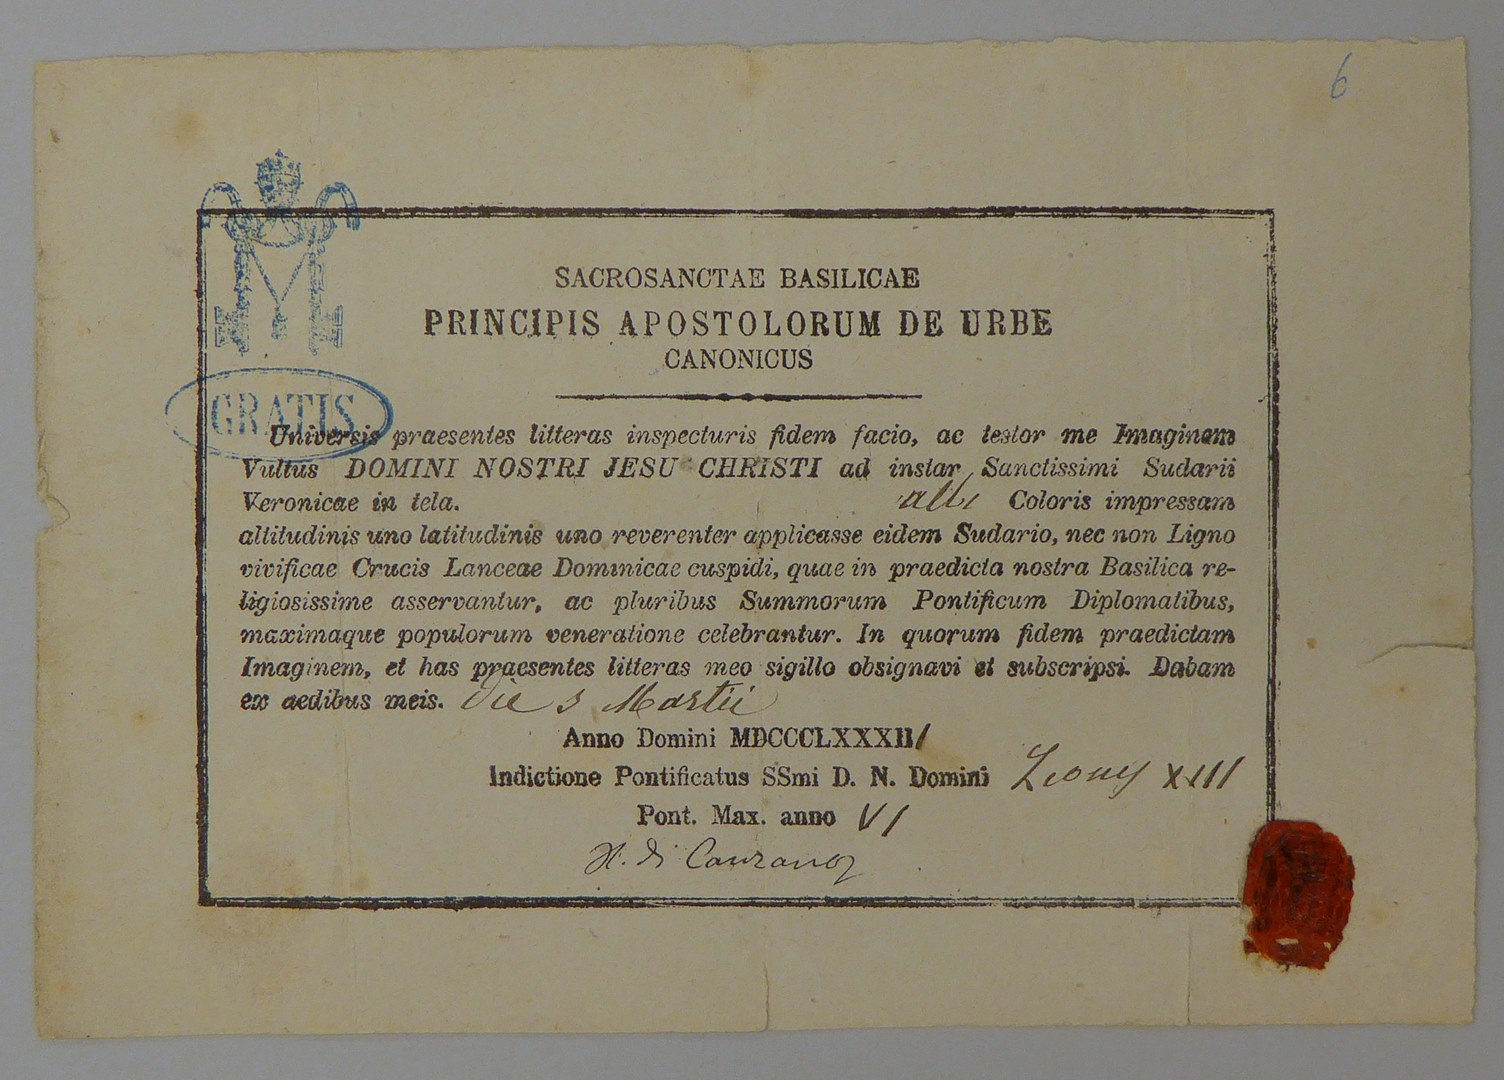 6
SACROSANCTAE BASILICAE
PRINCIPIS APOSTOLORUM DE URBE
CANONICUS
GRATIS
Universis praesentes litteras inspecturis fidem facio, ac testor me Imaginem
Vultus DOMINI NOSTRI JESU CHRISTI ad instar Sanctissimi Sudarii
Veronicae in tela. albi Coloris impressam
altitudinis uno latitudinis uno reverenter applicasse eidem Sudario, nec non Ligno
vivificae Crucis Lanceae Dominicae cuspidi, quae in praedicta nostra Basilica re-
ligiosissime asservantur, ac pluribus Summorum Pontificum Diplomatibus,
maximaque populorum veneratione celebrantur. In quorum fidem praedictam
Imaginem, et has praesentes litteras meo sigillo obsignavi et subscripsi. Dabam
ex aedibus meis. Die Martii
Anno Domini MDCCCLXXXII/
Indictione Pontificatus SSmi D. N. Domini Leonis XIII
Pont. Max. anno VI